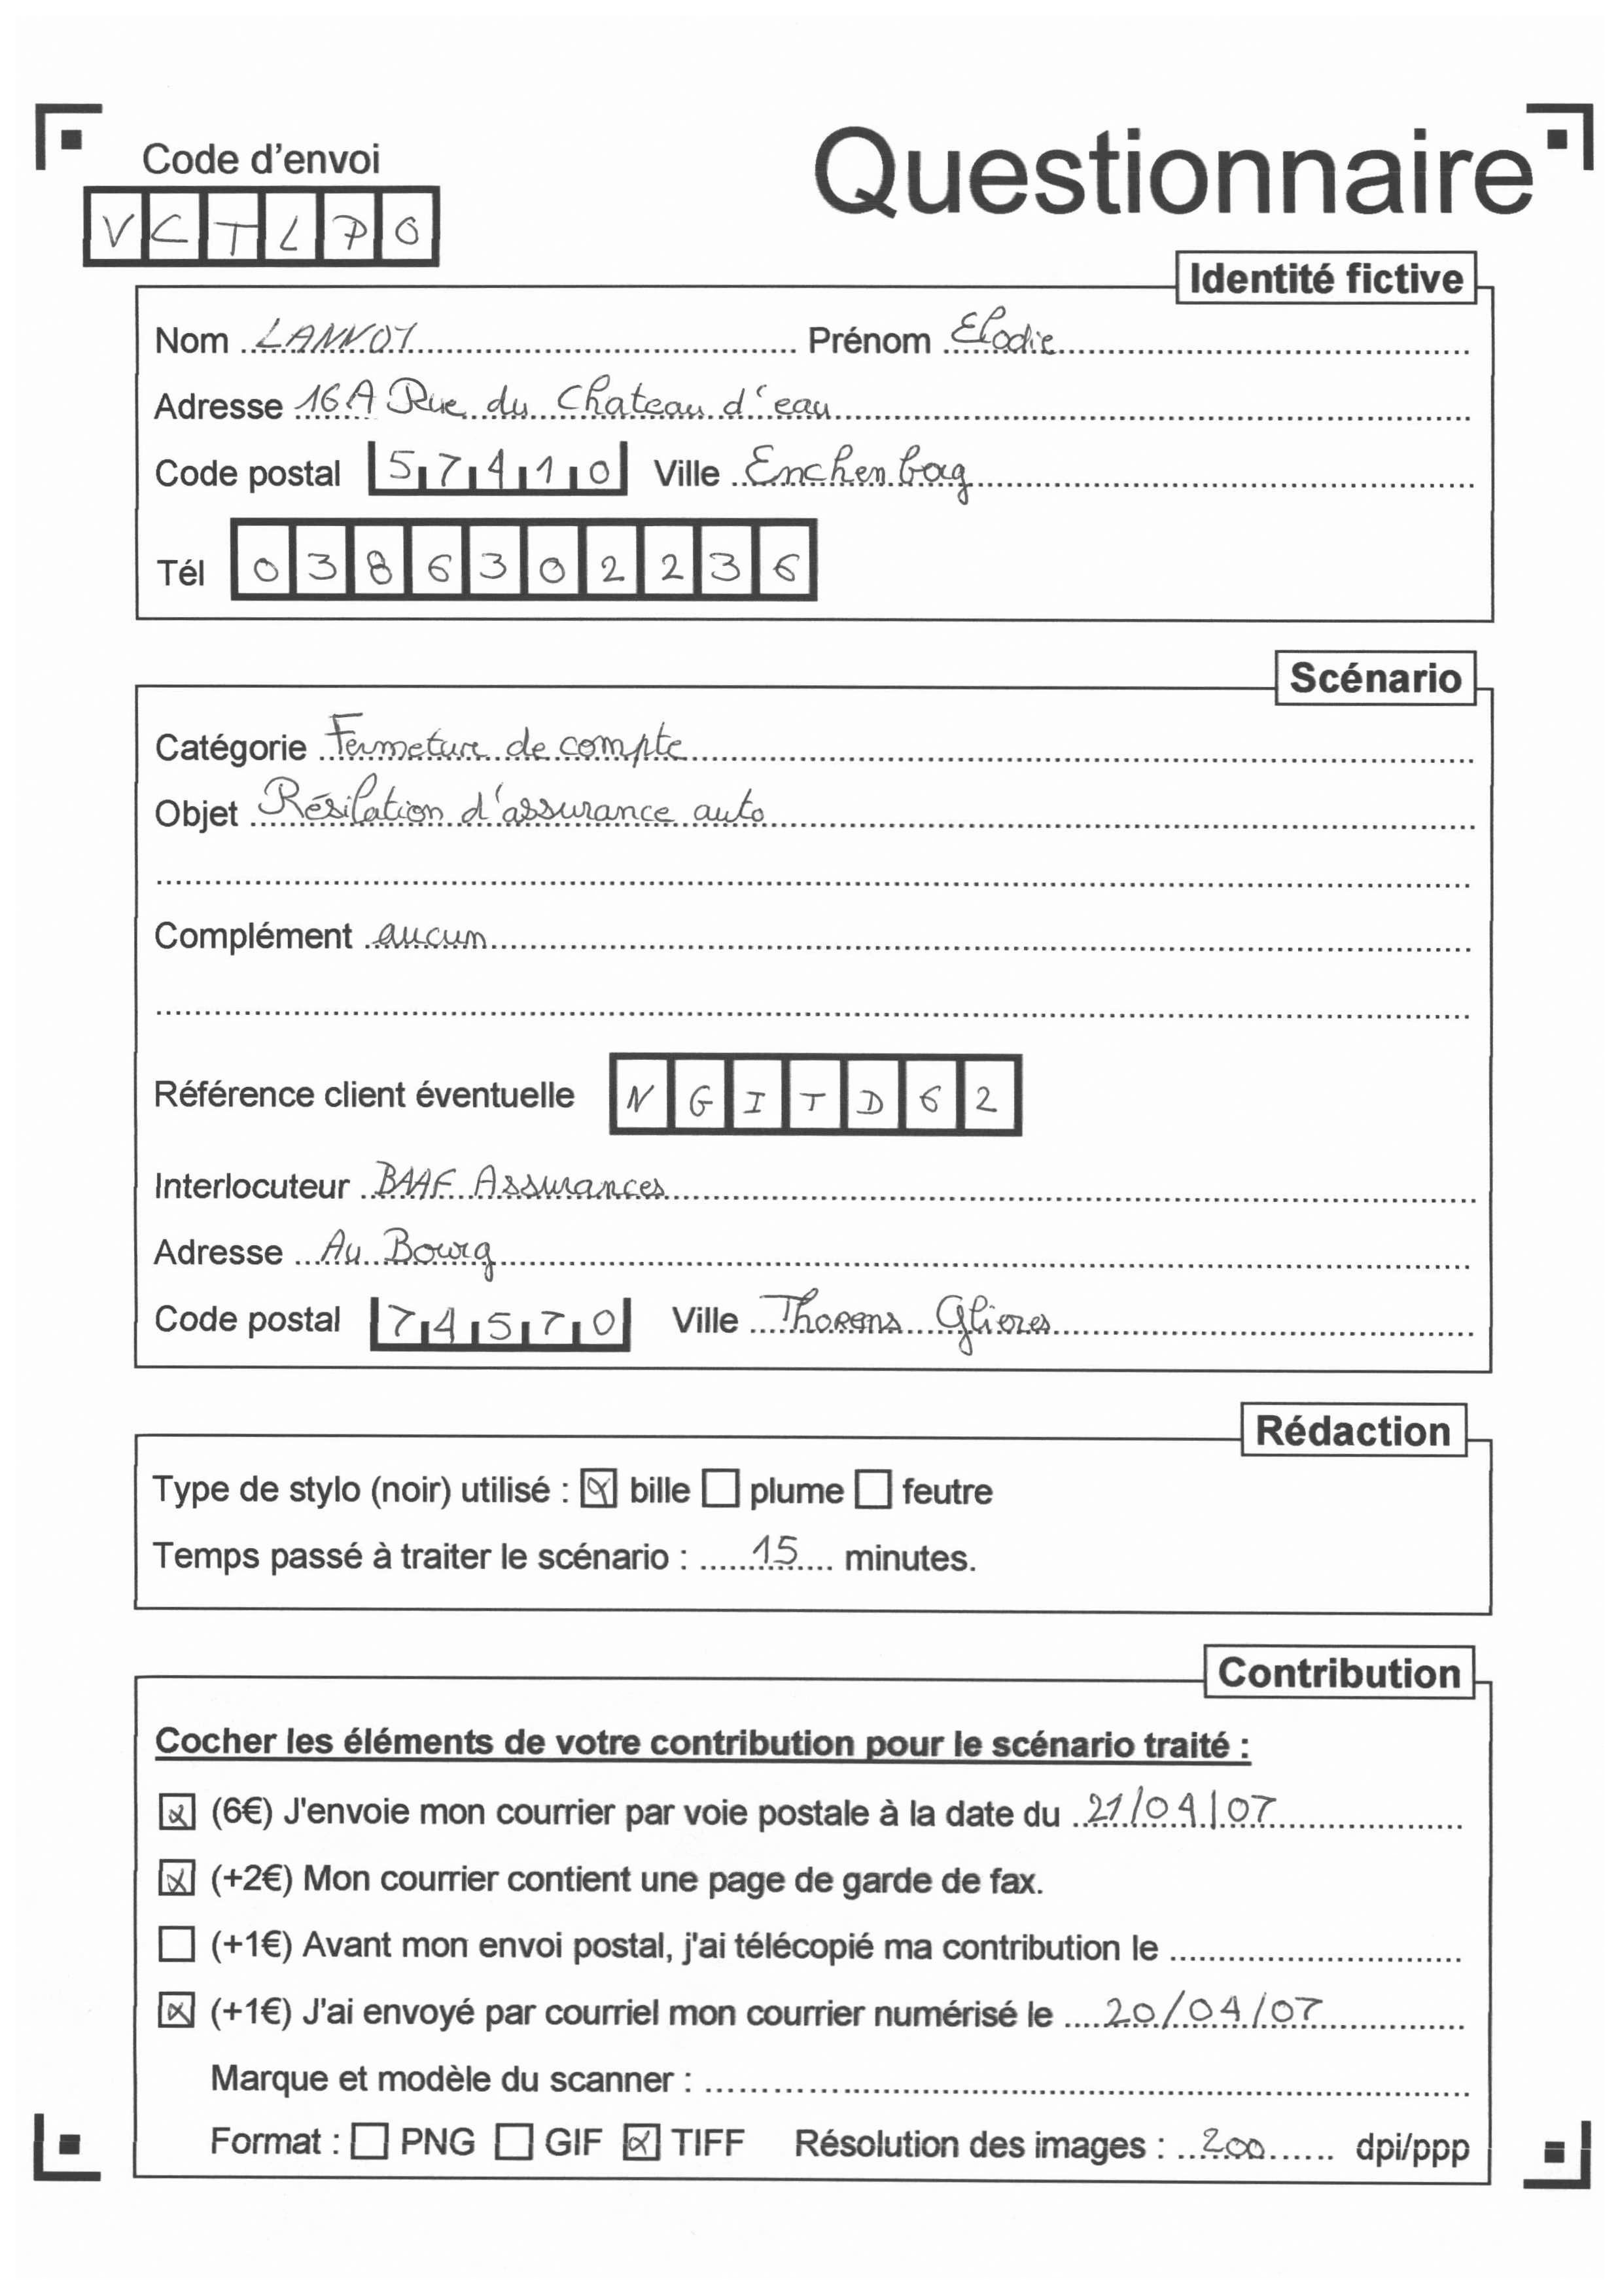 Code d'envoi
Questionnaire
V C T L P O
Identité fictive
Nom LANNOY Prénom Elodie
Adresse 16A Rue du Chateau d'eau
Code postal 57410 Ville Enchenbag
Tél 0386302236
Scénario
Catégorie Fermeture de compte
Objet Résilation d'assurance auto
Complément aucun
Référence client éventuelle N G I T D 6 2
Interlocuteur BAAF Assurances
Adresse Au Bourg
Code postal 74570 Ville Thorens Glieres
Rédaction
Type de stylo (noir) utilisé : ☒ bille ☐ plume ☐ feutre
Temps passé à traiter le scénario : 15 minutes.
Contribution
Cocher les éléments de votre contribution pour le scénario traité :
☒ (6€) J'envoie mon courrier par voie postale à la date du 21/04/07
☒ (+2€) Mon courrier contient une page de garde de fax.
☐ (+1€) Avant mon envoi postal, j'ai télécopié ma contribution le
☒ (+1€) J'ai envoyé par courriel mon courrier numérisé le 20/04/07
Marque et modèle du scanner :
Format : ☐ PNG ☐ GIF ☒ TIFF Résolution des images : 200 dpi/ppp